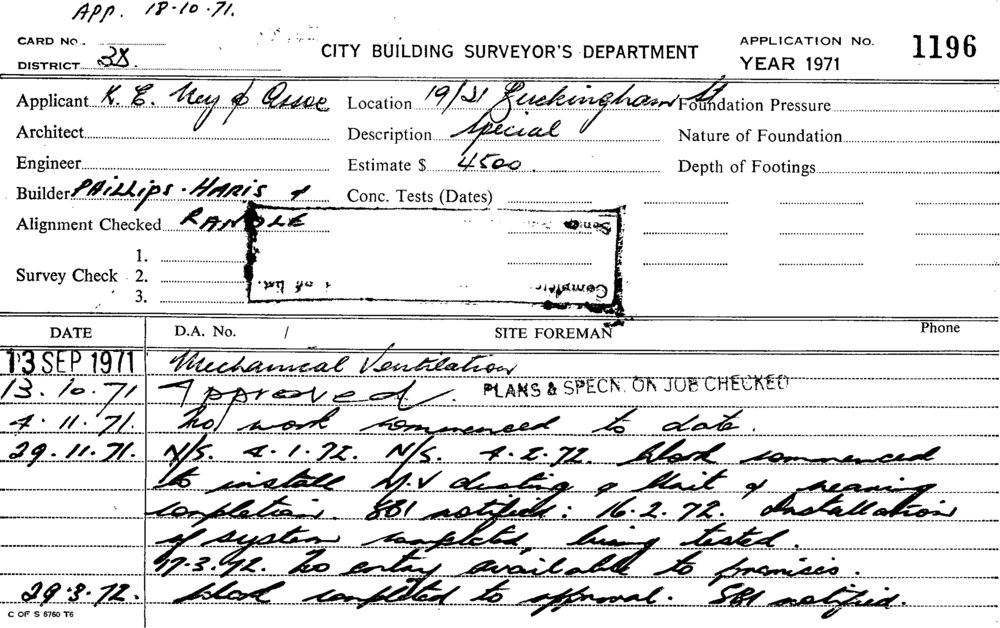 APP. 18.10.71.
CARD No.
DISTRICT 38.
CITY BUILDING SURVEYOR'S DEPARTMENT
APPLICATION No. 1196
YEAR 1971
Applicant K. E. Ney & Assoc Location 19/21 Buckingham St Foundation Pressure
Architect Description Special Nature of Foundation
Engineer Estimate $ 4500. Depth of Footings
Builder PHILLIPS-HARIS & Conc. Tests (Dates)
Alignment Checked RANDLE
1.
Survey Check 2.
3.
DATE D.A. No. / SITE FOREMAN Phone
13 SEP 1971 Mechanical Ventilation
13.10.71 Approved. PLANS & SPECN. ON JOB CHECKED
4.11.71. No work commenced to date.
29.11.71. N/S. 4.1.72. N/S. 4.2.72. Work commenced
to install M.V ducting & Unit & nearing
completion. SBI notified: 16.2.72. Installation
of system completed, being tested.
17.3.72. No entry available to premises.
29.3.72. Work completed to approval. SBI notified.
C OF S 6760 T6